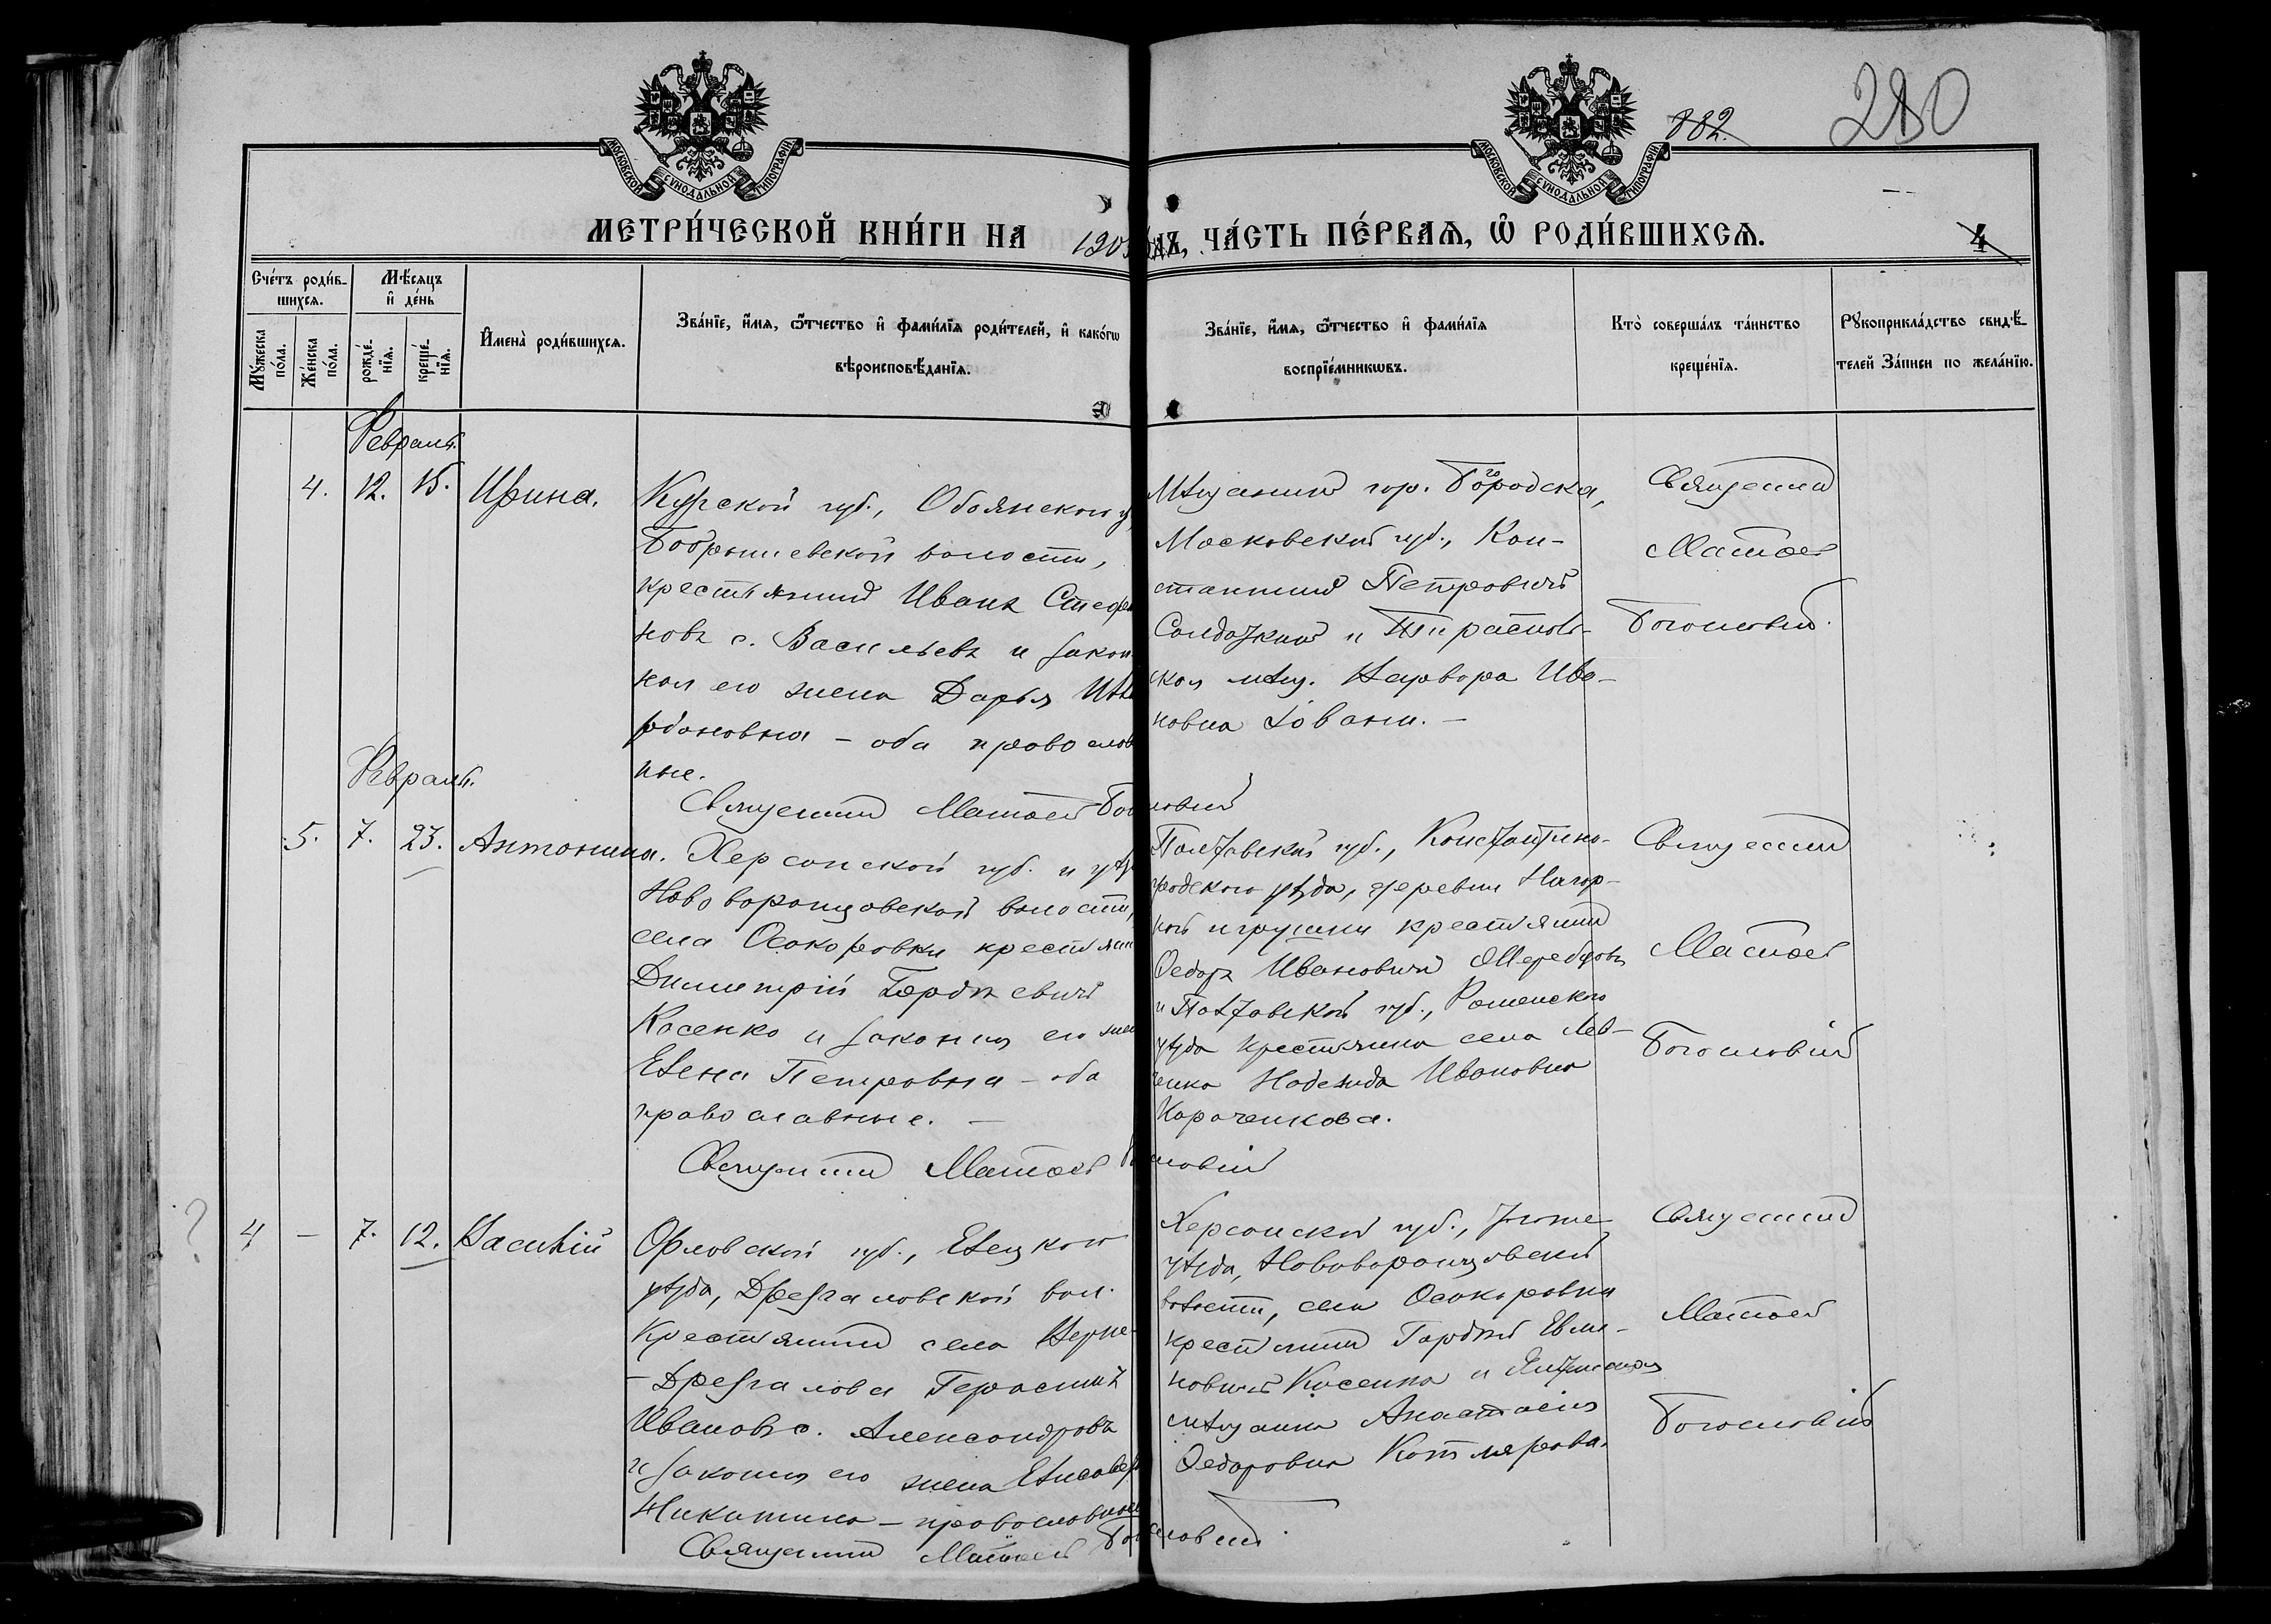 882.
280
МОСКОВСКОЙ СѴНОДАЛЬНОЙ ТИПОГРАФІИ
МОСКОВСКОЙ СѴНОДАЛЬНОЙ ТИПОГРАФІИ
МЕТРИ́ЧЕСКОЙ КНИ́ГИ НА 1903 ГО́ДЪ, ЧА́СТЬ ПЕ́РВАѦ, Ѡ РОДИ́ВШИХСѦ.
4
Сче́тъ роди́в-
шихсѧ.
Мѣ́сѧцъ
и҆ де́нь
Мꙋ́жеска
по́ла.
Же́нска
по́ла.
рожде́-
нїѧ.
креще́-
нїѧ.
И҆мена̀ роди́вшихсѧ.
Зва́нїе, и҆́мѧ, ѻ҆́тчество и҆ фами́лїѧ роди́телей, и҆ како́гѡ
вѣроисповѣ́данїѧ.
Зва́нїе, и҆́мѧ, ѻ҆́тчество и҆ фами́лїѧ
воспрїе́мникѡвъ.
Кто̀ соверша́лъ та́инство
креще́нїѧ.
Рꙋкоприкла́дство свидѣ́-
телей За́писи по жела́нїю.
Февраля.
4. 12. 15. Ирина.
Курской губ., Обоянскому
Бобрышевской волости,
крестьянинъ Иванъ Стефа
новъ с. Васильевъ и закон
ная его жена Дарья
– оба православ
ные.
Священникъ Матѳей Бог
словскій
Мѣщанинъ гор. Богородска,
Московской губ., Кон-
стантинъ Петровичъ
Солдаткинъ и Тирасполь-
ская мѣщ. Варвара Ива-
новна
Священникъ
Матѳей
Богословскій.
Февраля.
5. 7. 23. Антонина.
Херсонской губ. и уѣз
Нововоронцовской волости,
села Осокоровки крестьянин
Димитрій Гордѣевичъ
Косенко и законная его жен
Елена Петровна – оба
православные. –
Священникъ Матѳей Богословскій
Полтавской губ., Константино-
градскаго уѣзда, деревни Нагор-
крестьянинъ
Ѳедоръ Ивановичъ Жеребцовъ
и Полтавской губ., Роменскаго
уѣзда крестьянка села Лев-
ченко Надежда Ивановна
Карпченкова.
Священникъ
Матѳей
Богословскій
4 – 7. 12. Василій
Орловской губ., Елецкаго
уѣзда, Дрезгаловской вол.
крестьянинъ села Верхне-
– Дрезгалова Герасимъ
Ивановъ с. Александровъ
и законная его жена Елисавет
Никитина – православные
Священникъ Матѳей Богословскій.
Херсонской губ., тогоже
уѣзда, Нововоронцовской
волости, села Осокоровки
крестьянинъ Гордѣй
новичъ Косенко и
мѣщанка Анастасія
Ѳедоровна Котлярова.
Священникъ
Матѳей
Богословскій